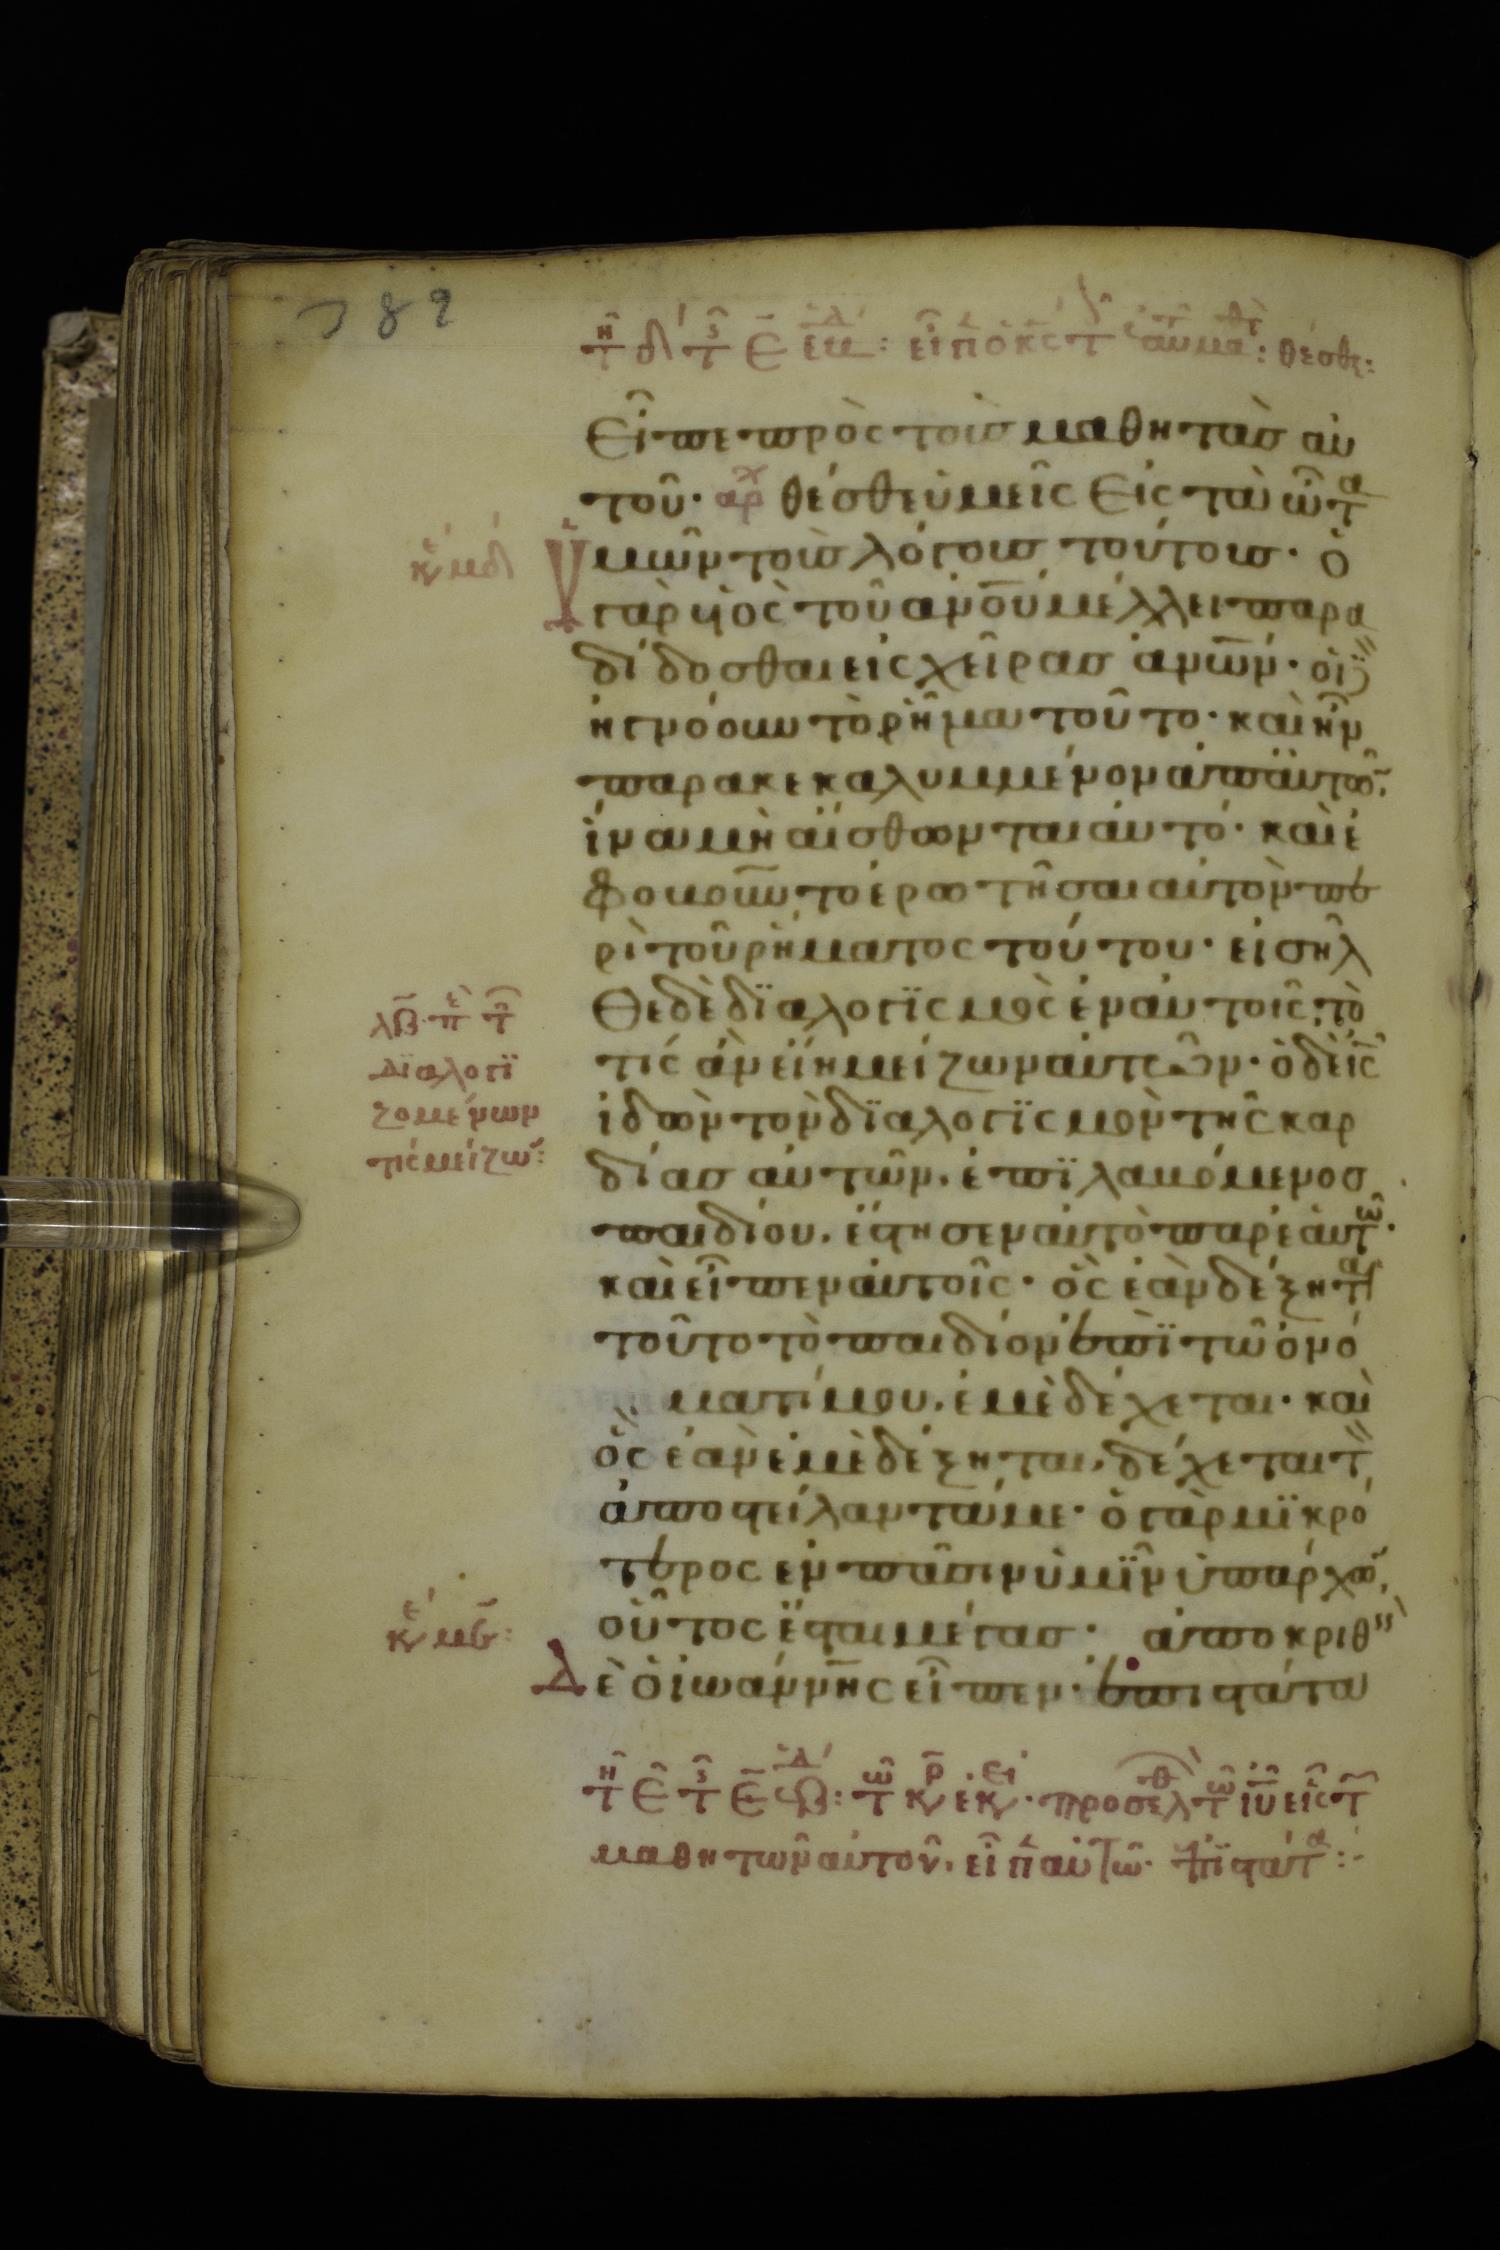 εἶπε πρὸς τοὺς μαθητὰς αὐ
τοῦ· αρχ θέσθε ὑμεῖς εἰς τὰ ὦτα
ὑμῶν τοὺς λόγους τούτους· ὁ
γὰρ υἱὸς τοῦ ἀνου μέλλει παρα
δίδοσθαι εἰς χεῖρας ἀνων· οἱ
ἠγνόουν τὸ ῥῆμα τοῦτο· καὶ ἦν
παρακεκαλυμμένον ἀπ αὐτῶ,
ἵνα μὴ αἴσθωνται αὐτό· καὶ ἐ
φοβοῦντο ἐρωτῆσαι αὐτὸν πε
ρὶ τοῦ ῥήματος τούτου· εἰσῆλ
θε δὲ διαλογϊσμὸς ἐν αὐτοῖς· τὸ
τίς ἂν εἴη μείζων αὐτῶν· ὁ δὲ ις
ἰδὼν τὸν διαλογϊσμὸν τῆς καρ
δίας αὐτῶν, ἐπϊλαβόμενος
παιδίου, ἔστησεν αὐτὸ παρ ἑαυτω·
καὶ εἶπεν αὐτοῖς· ὃς ἐὰν δέξηται
τοῦτο τὸ παιδίον ἐπὶ τῶ ὀνό
ματί μου, ἐμὲ δέχεται· καὶ
ὃς ἐὰν ἐμὲ δέξηται, δέχεται τ
ἀποστείλαντά με· ὁ γὰρ μϊκρό
τερος ἐν πᾶσιν ὑμῖν ὑπάρχω,
οὗτος ἔσται μέγας· ἀποκριθεὶς
δὲ ὁ ἰωάννης εἶπεν· ἐπιστάτα
λβ πε τ
διαλογι
ζομένων
τίς μείζω:
μαθητῶν αὐτοῦ. εἶπ αὐτῶ· ἐπϊστάτα: